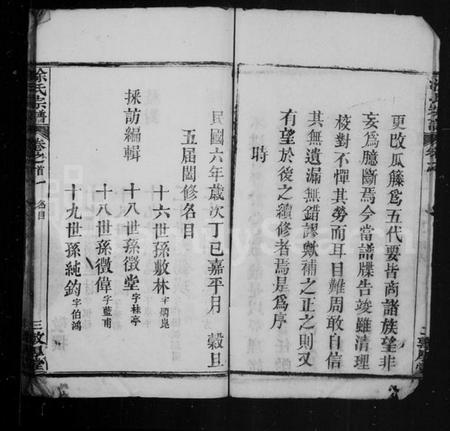 更改瓜籐爲五代要皆商諸族望非
妄爲臆斷焉今當譜牒告竣雖清理
校對不憚其勞而耳目難周敢自信
其無遺漏無錯謬歟補之正之則又
有望於後之續修者焉是爲序
時
民國六年歲次丁巳嘉平月 穀旦
五屆闔修名目
十六世孫敷林字
採訪編輯 十八世孫徵堂字桂亭
十八世孫徵偉字藍甫
十九世孫純鈞字伯鴻
徐氏宗譜 卷之首 名目 三